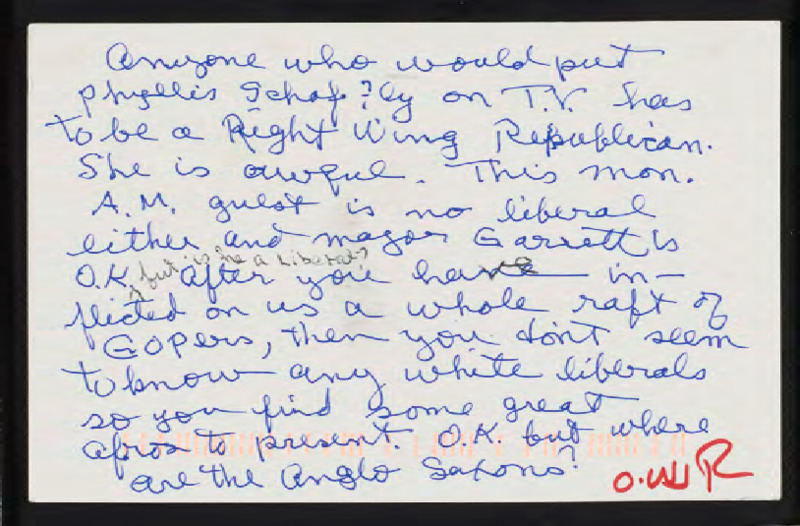 Anyone who would put
Phyllis Schaf?ly on T.V. has
to be a Right Wing Republican.
She is awful. This mon.
A.M. guest is no liberal
either and mayor Garrett is
but is he a Liberal?
O.K. After you have in-
flicted on us a whole raft of
GOPers, then you don't seem
to know any white liberals
so you find some great
afros to present. OK but where
are the Anglo Saxons?